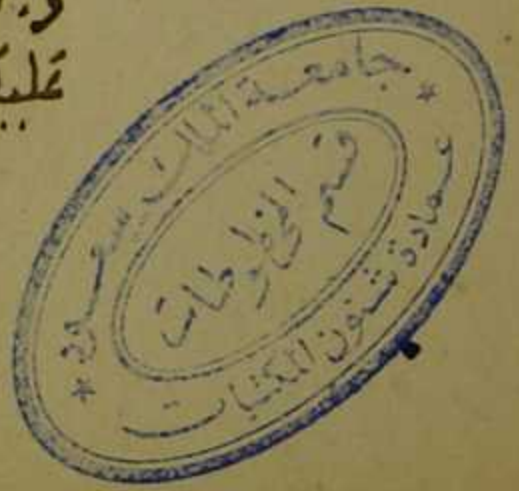 عليك
* جامعة الملك سعود *
قسم المخطوطات
عمادة شئون المكتبات